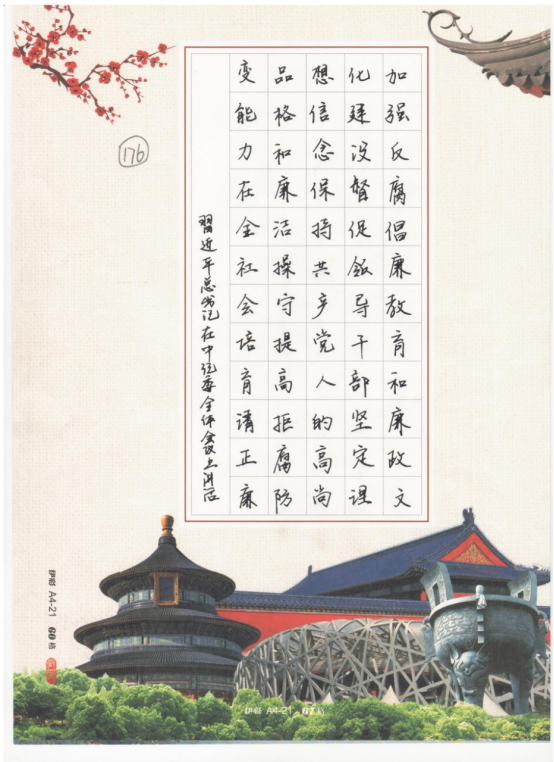 加强反腐倡廉教育和廉政文
化建设督促领导干部坚定理
想信念保持共产党人的高尚
品格和廉洁操守提高拒腐防
变能力在全社会培育请正廉
習近平总书记在中纪委全体会议上讲话
176
伊彩 A4-21 60格
伊彩 A4-21